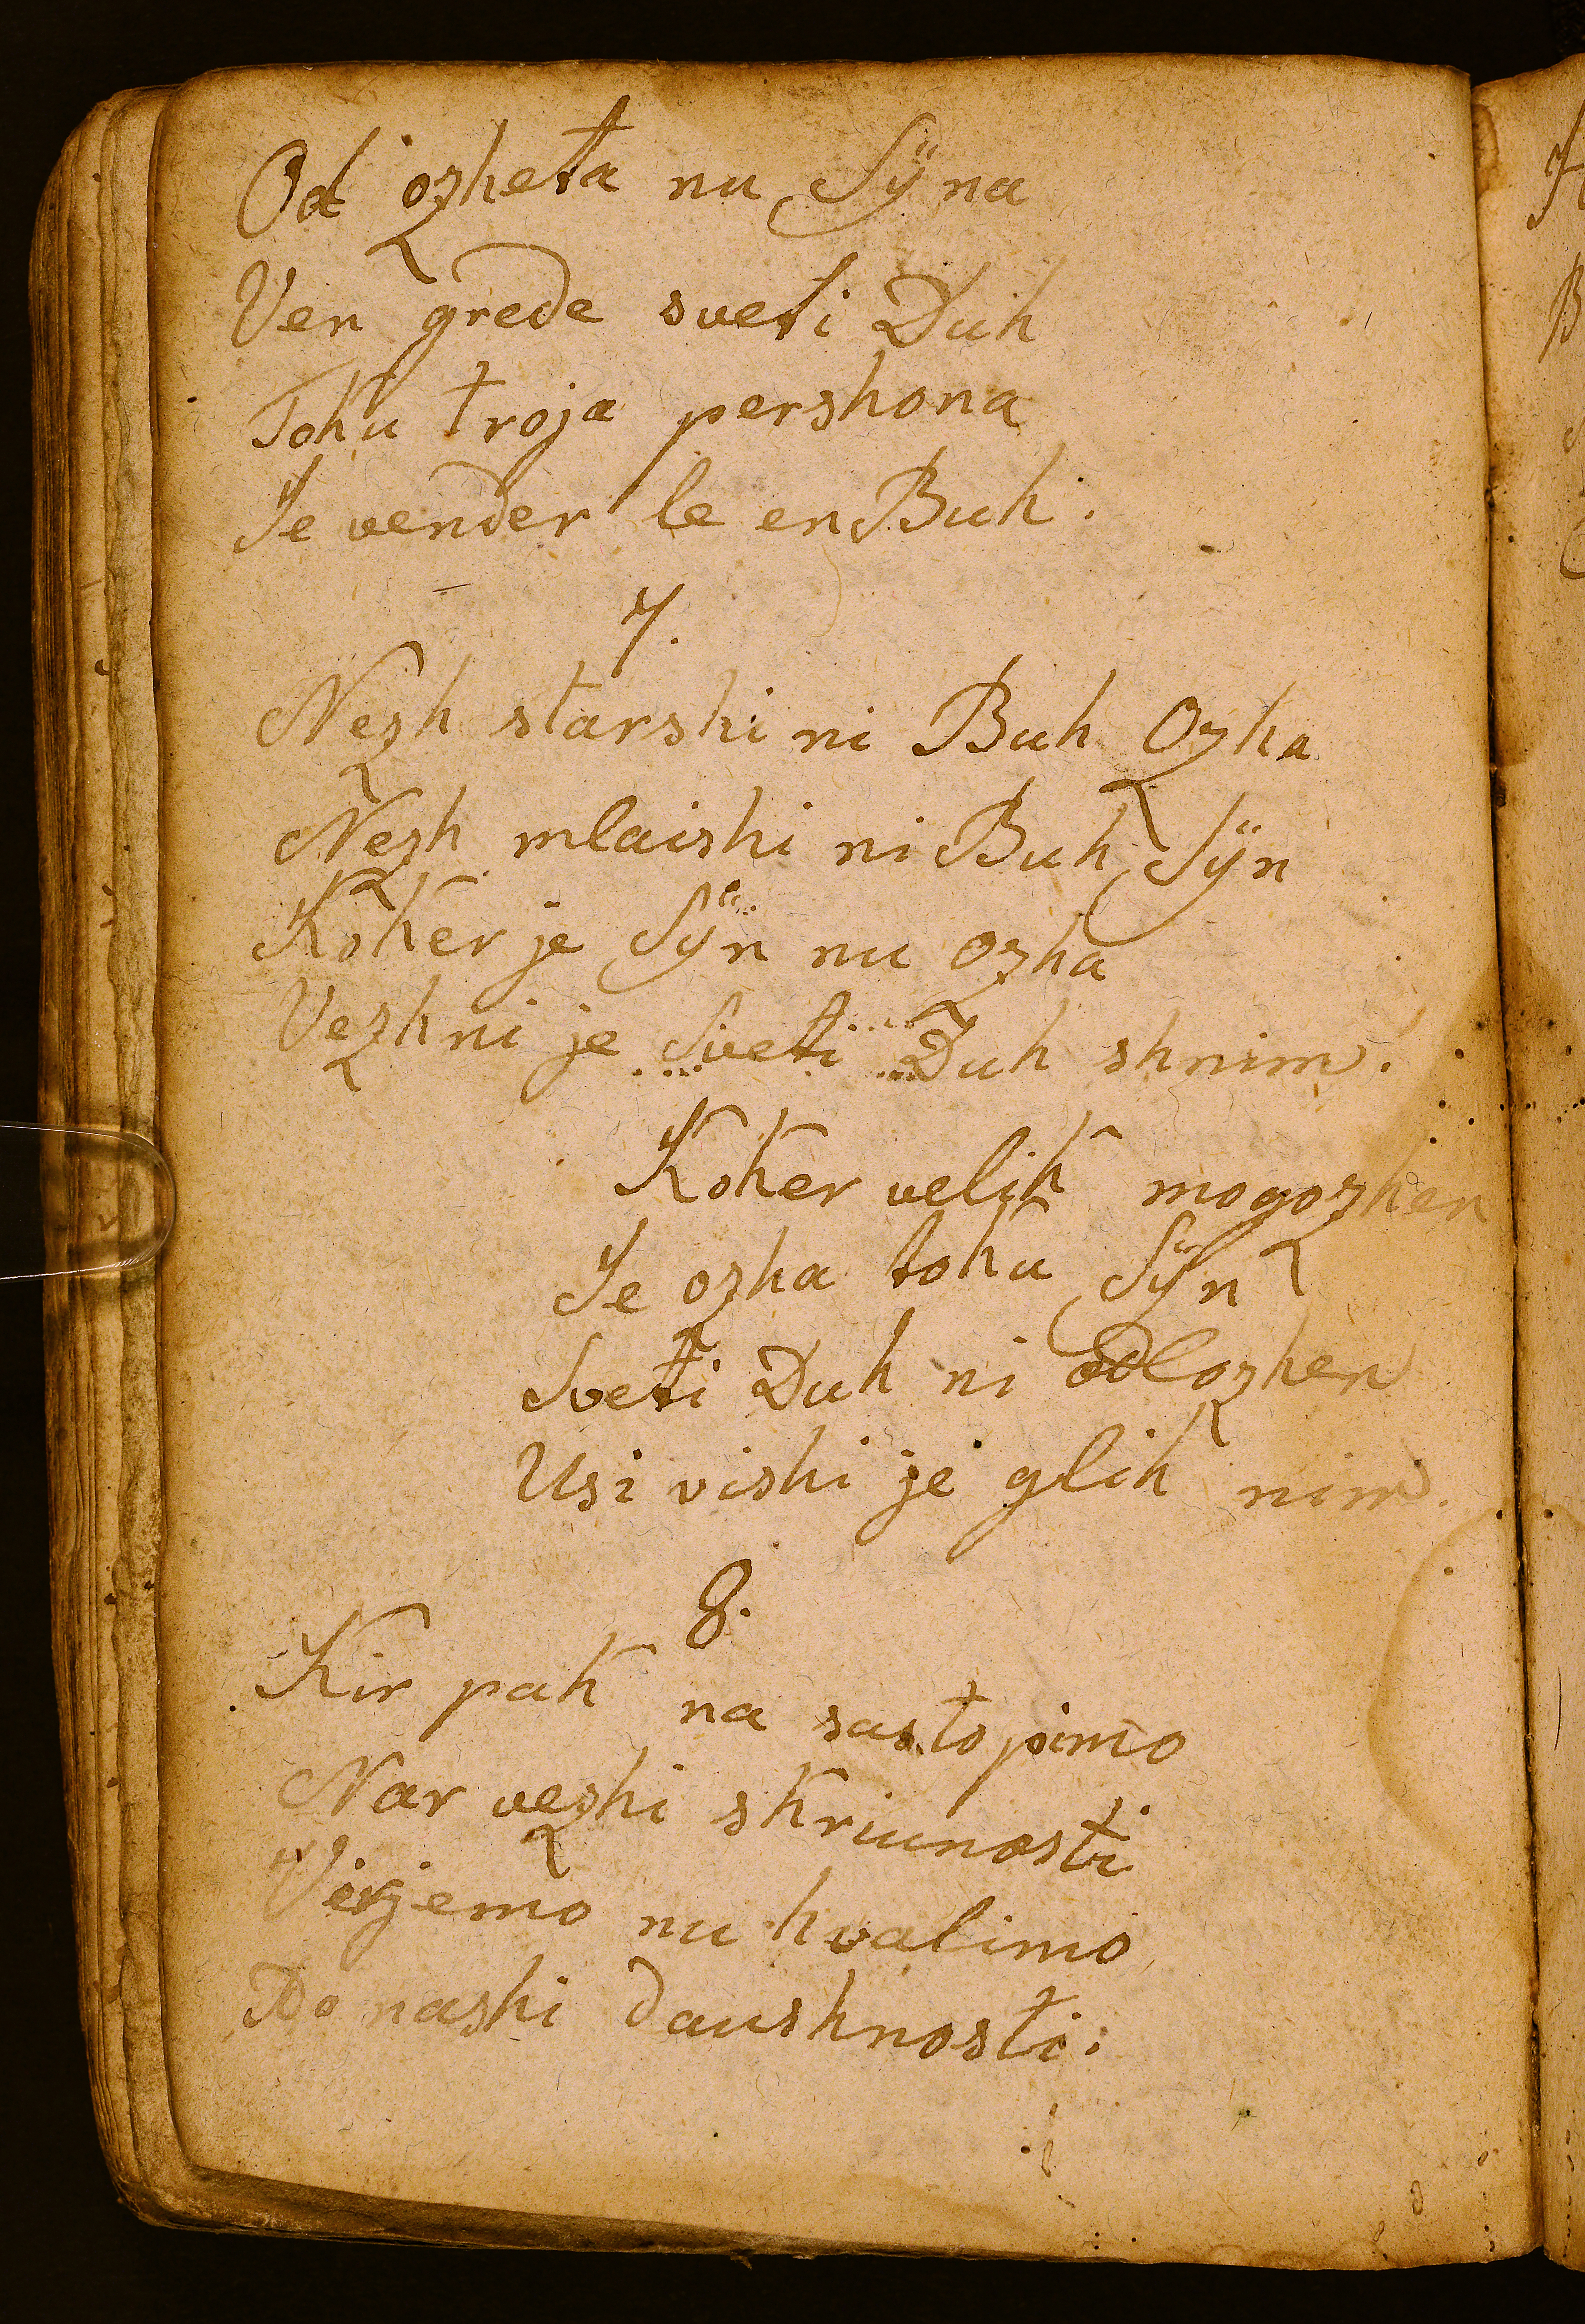 Od ozheta nu Sÿna
Ven grede sveti Duh
Toku troja pershona
Je vender le en Buh.
7.
Nezh starshi ni Buh Ozha
Nezh mlaishi ni Buh Sÿn
Koker je Sÿn nu ozha
Vezhni je Sveti Duh shnim.
Koker velik mogozhen
Je ozha toku Sÿn
Sveti Duh ni odlozhen
Usi vishi je glih nim.
8.
Kir pak na sastopimo
Nar vezhi skriunosti
Virjemo nu hvalimo
Do nashi daushnosti.